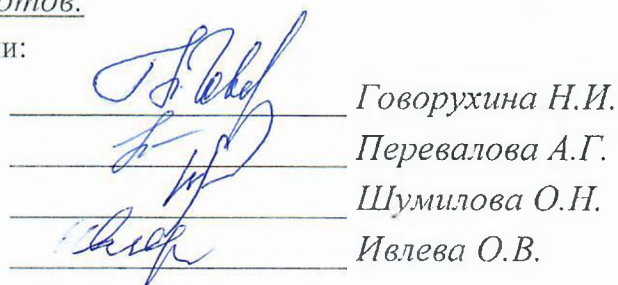 отов.
и:
Говорухина Н.И.
Перевалова А.Г.
Шумилова О.Н.
Ивлева О.В.